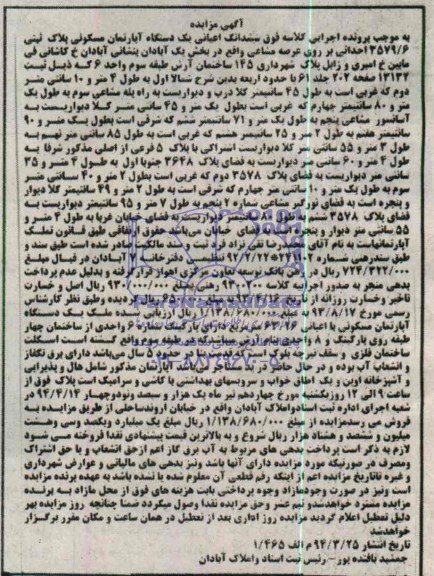 آگهی مزایده
به موجب پرونده اجرایی کلاسه فوق ششدانگ اعیانی یک دستگاه آپارتمان مسکونی پلاک ثبتی
۳۵۷۹/۶ احداثی بر روی عرصه مشاعی واقع در بخش یک آبادان بنشانی آبادان خ کاشانی فی
مابین خ امیری و زابل پلاک شهرداری ۱۴۵ ساختمان آرش طبقه سوم واحد ۶ که ذیل ثبت
۱۳۱۳۴ صفحه ۲۰۲ جلد ۶۱ با حدود اربعه بدین شرح شمالا اول به طول ۴ متر و ۱۰ سانتی متر
دوم که غربی است به طول ۴۵ سانتیمتر کلا درب و دیواریست به راه پله مشاعی سوم به طول یک
متر و ۸۰ سانتیمتر چهارم که غربی است بطول یک متر و ۴۵ سانتی متر کلا دیواریست به
آسانسور مشاعی پنجم به طول یک متر و ۷۱ سانتیمتر ششم که شرقی است بطول یک متر و ۹۰
سانتیمتر هفتم به طول ۲ متر و ۲۵ سانتیمتر هشتم که غربی است به طول ۸۵ سانتی متر نهم به
طول ۳ متر و ۵۵ سانتی متر کلا دیواریست اشتراکی با پلاک ۵ فرعی از اصلی مذکور شرقا به
طول ۴ متر و ۶۰ سانتی متر دیواریست به فضای پلاک ۳۶۴۸ جنوبا اول به طول ۴ متر و ۳۵
سانتی متر دیواریست به فضای پلاک ۳۵۷۸ دوم که غربی است بطول ۲ متر و ۴۰ سانتی متر
سوم به طول یک متر و ۱۰ سانتی متر چهارم که شرقی است به طول ۲ متر و ۴۹ سانتیمتر کلا دیوار
و پنجره است به فضای نورگیر مشاعی شماره ۲ پنجم به طول ۷ متر و ۹۵ سانتیمتر دیواریست به
فضای پلاک ۳۵۷۸ ششم به طول سانتیمتر دیواریست به فضای خیابان غربا به طول ۴ متر و
۵۵ سانتی متر دیوار و پنجره به فضای خیابان می باشد حقوق ارتفاقی طبق قانون تملک
آپارتمانهاست به نام آقای تقی نژاد فرد ثبت و سند مالکیت صادر شده است طبق سند و
طبق سند رهنی شماره دفترخانه آبادان در قبال مبلغ
۷۲۴/۳۲۲/۰۰۰ ریال در رهن بانک توسعه تعاون مرکزی اهواز قرار گرفته و بدلیل عدم پرداخت
بدهی منجر به صدور اجراییه کلاسه ۹۳۰۰۲۰۰ رهنی مبلغ ۹۳۰/۰۰۰/۰۰۰ ریال اصل و خسارت
تاخیر و خسارت روزانه از تاریخ ریال گردیده و طبق نظر کارشناس
رسمی مورخ ۹۳/۸/۱۷ به مبلغ ۱/۱۳۸/۶۸۰/۰۰۰ ریال ارزیابی شده ملک یک دستگاه
آپارتمان مسکونی با اعیانی ۶۳/۷۶ پارکینگ ۶ واحدی از ساختمان چهار
طبقه روی پارکینگ و ۸ واحدی در طبقه سوم واقع گشته است اسکلت
ساختمان فلزی و سقف تیرچه بلوک است که حدود ۵ سال می باشد دارای برق تکفاز
و انشعاب آب بوده و در حال حاضر می باشد آپارتمان مذکور شامل هال و پذیرایی
و آشپزخانه اوپن و یک اطاق خواب و سرویسهای بهداشتی با کاشی و سرامیک است پلاک فوق از
ساعت ۹ الی ۱۲ روز یکشنبه مورخ چهاردهم تیر ماه یک هزار و سیصد و نود و چهار ۹۴/۴/۱۴ در
شعبه اجرای اداره ثبت اسناد و املاک آبادان واقع در خیابان اروند ساحلی از طریق مزایده به
فروش می رسد مزایده از مبلغ ۱/۱۳۸/۶۸۰/۰۰۰ ریال مبلغ یک میلیارد و یکصد و سی و هشت
میلیون و ششصد و هشتاد هزار ریال شروع و به بالاترین قیمت پیشنهادی نقدا فروخته می شود
لازم به ذکر است پرداخت بدهی های مربوط به آب برق گاز اعم از حق انشعاب و یا حق اشتراک
و مصرف در صورتیکه مورد مزایده دارای آنها باشد و نیز بدهی های مالیاتی و عوارض شهرداری
و غیره تا تاریخ مزایده اعم از اینکه رقم قطعی آن معلوم شده یا نشده باشد به عهده برنده مزایده
است و نیز در صورت وجود مازاد وجوه پرداختی بابت هزینه های فوق از محل مازاد به برنده
مزایده مسترد خواهد شد و نیم عشر و حق مزایده نقدا وصول میگردد ضمنا چنانچه روز مزایده بهر
دلیل تعطیل اعلام گردید مزایده روز اداری بعد از تعطیل در همان ساعت و مکان مقرر برگزار
خواهد شد
تاریخ انتشار ۹۴/۳/۲۵ م الف ۱/۴۶۵
جمشید بافنده پور - رئیس ثبت اسناد و املاک آبادان